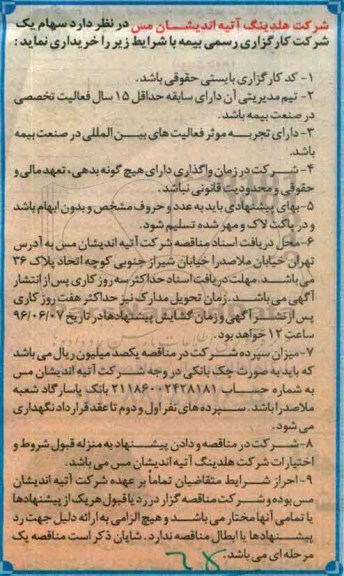 شرکت هلدینگ آتیه اندیشـــان مس در نظر دارد سهام یک
شرکت کارگزاری رسمی بیمه با شرایط زیر را خریداری نماید :
۱- کد کارگزاری بایستی حقوقی باشد.
۲- تیم مدیریتی آن دارای سابقه حداقل ۱۵ سال فعالیت تخصصی
در صنعت بیمه باشد.
۳- دارای تجربـــه موثر فعالیت های بیـــن المللی در صنعت بیمه
باشد.
۴- شـــرکت در زمان واگذاری دارای هیچ گونه بدهی، تعهد مالی و
حقوقی و محدودیت قانونی نباشد.
۵- بهای پیشنهادی باید به عدد و حروف مشخص و بدون ابهام باشد
و در پاکت لاک و مهر شده تسلیم شود.
۶- محل دریافت اسناد مناقصه شرکت آتیه اندیشان مس به آدرس
تهران خیابان ملاصدرا خیابان شیراز جنوبی کوچه اتحاد پلاک ۳۶
می باشـــد. مهلت دریافت اسناد حداکثر سه روز کاری پس از انتشار
آگهی می باشـــد. زمان تحویل مدارک نیز حداکثر هفت روز کاری
پس از نشـــر آگهی و زمان گشایش پیشنهادها در تاریخ ۹۶/۰۶/۰۷
ساعت ۱۲ خواهد بود.
۷- میزان سپرده شـــرکت در مناقصه یکصد میلیون ریال می باشد
که باید به صورت چک بانکی در وجه شـــرکت آتیه اندیشان مس
به شماره حساب ۲۱۱۸۶۰۰۲۴۲۸۱۸۱ بانک پاسارگاد شعبه
ملاصدرا باشد. ســـپرده های نفر اول و دوم تا عقد قرارداد نگهداری
می شود.
۸- شـــرکت در مناقصه و دادن پیشـــنهاد به منزله قبول شروط و
اختیارات شرکت هلدینگ آتیه اندیشان مس می باشد.
۹- احراز شـــرایط متقاضیان تماماً بر عهده شرکت آتیه اندیشان
مس بوده و شـــرکت مناقصه گزار در رد یا قبول هر یک از پیشنهادها
یا تمامی آنها مختار می باشـــد و هیچ الزامی به ارائه دلیل جهت رد
پیشـــنهادها یا ابطال مناقصه ندارد. شایان ذکر است مناقصه یک
مرحله ای می باشد.